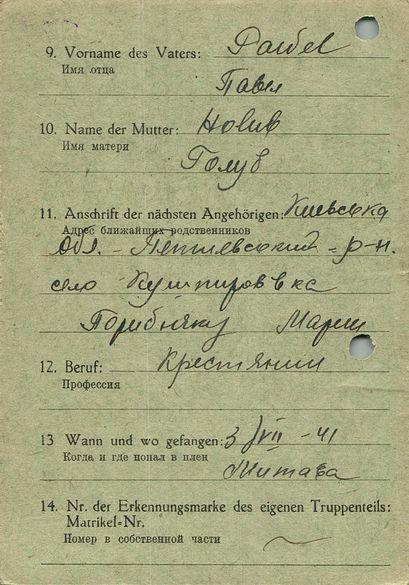 9. Vorname des Vaters: Pawel
Имя отца
Павел
10. Name der Mutter:
Имя матери
Голуб
11. Anschrift der nächsten Angehörigen: Киевська
Адрес ближайших родственников
Обл. - р-н.
село Кушнировка
Марии
12. Beruf: Крестянин
Профессия
13 Wann und wo gefangen: 3/VII-41
Когда и где попал в плен
Митава
14. Nr. der Erkennungsmarke des eigenen Truppenteils:
Matrikel=Nr.
Номер в собственной части